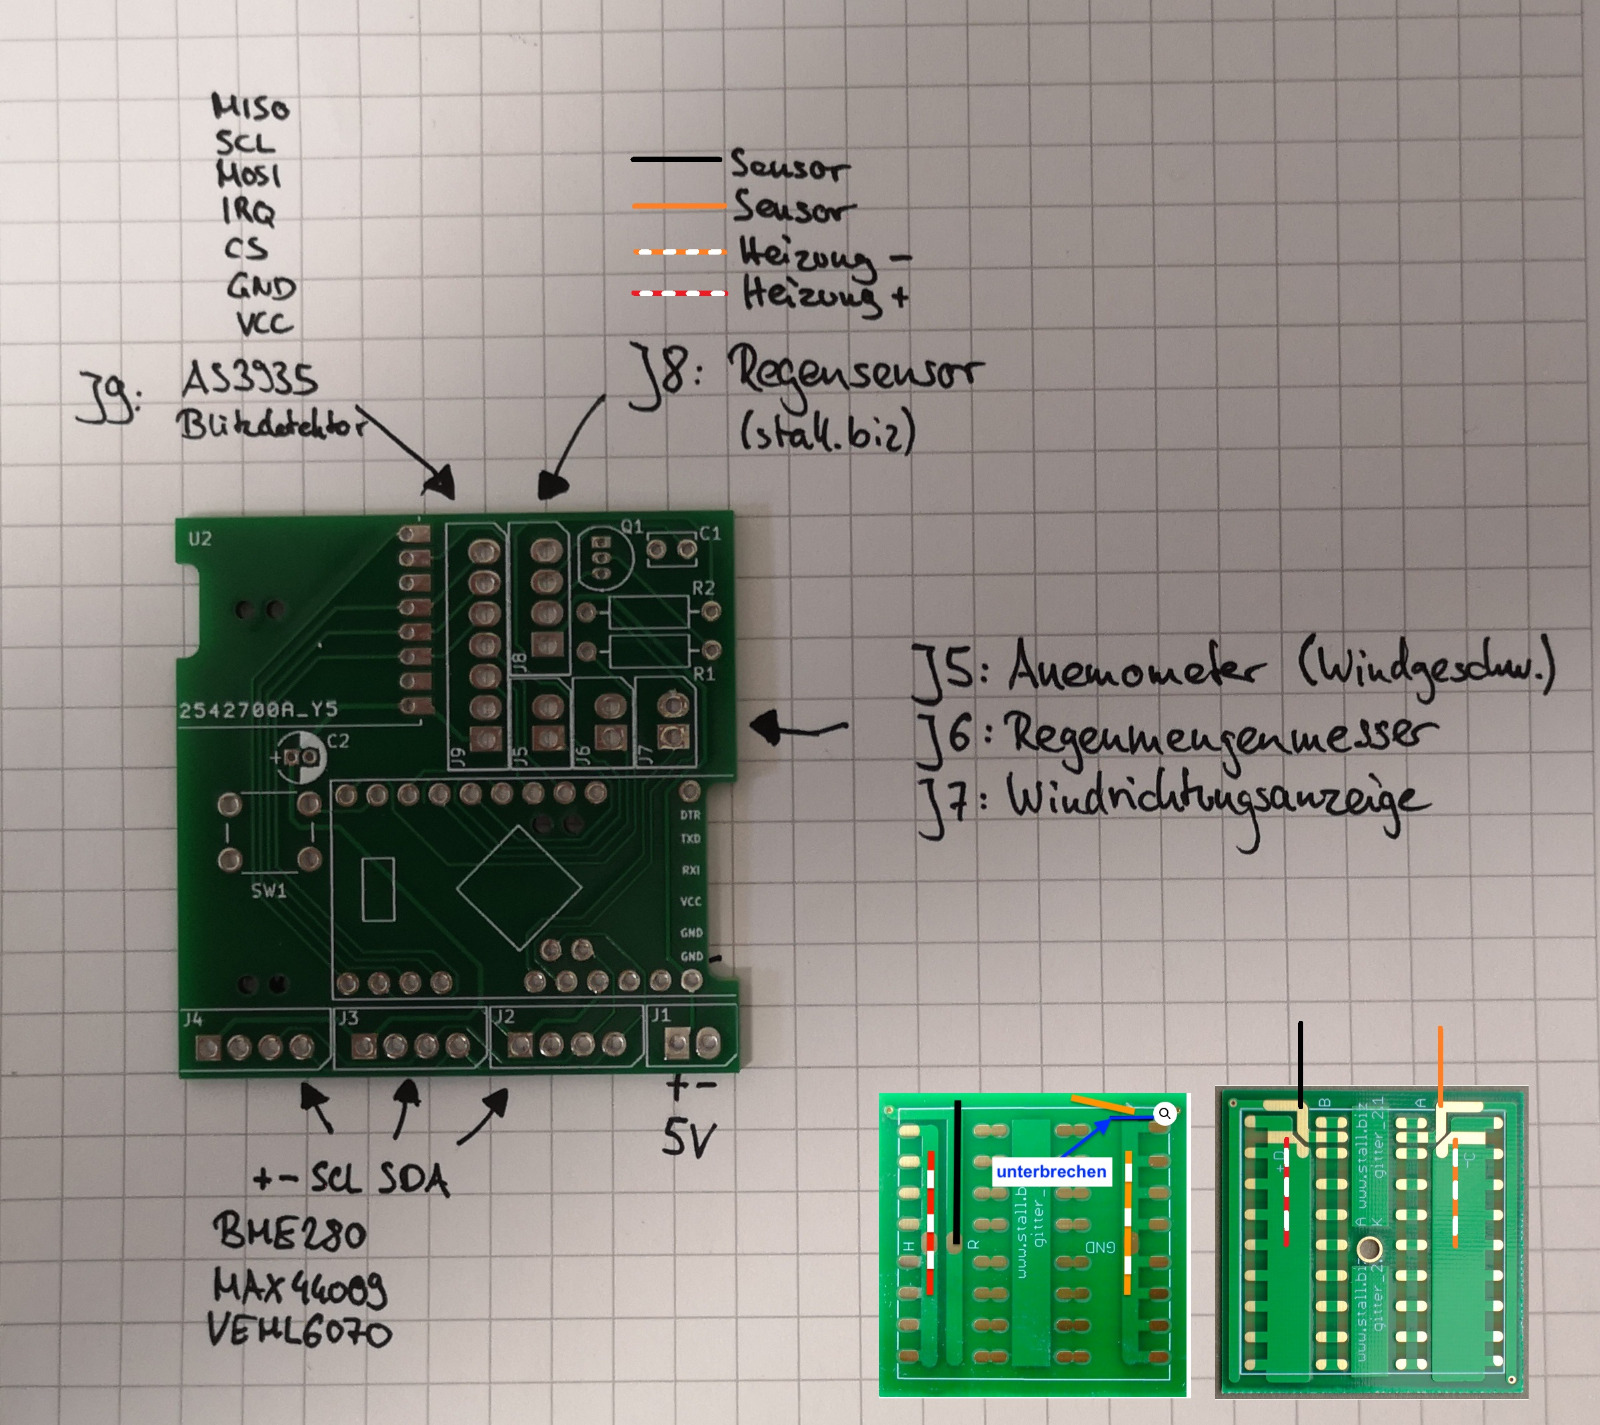 MISO
SCL
MOSI
IRQ
CS
GND
VCC
J9: AS3935
Blitzdetektor
Sensor
Sensor
Heizung -
Heizung +
J8: Regensensor
(stall.biz)
U2
Q1
C1
R2
R1
J8
2542700A_Y5
J9
J5
J6
J7
+
C2
SW1
DTR
TXD
RXI
VCC
GND
GND -
J4
J3
J2
J1
J5: Anemometer (Windgeschw.)
J6: Regenmengenmesser
J7: Windrichtungsanzeige
+ -
5V
+ - SCL SDA
BME280
MAX44009
VEML6070
unterbrechen
H
R
www.stall.b
gitter_
GND
B
A
www.stall.biz
gitter_2.1
+D
-C
A
K
www.stall.bi
gitter_2.